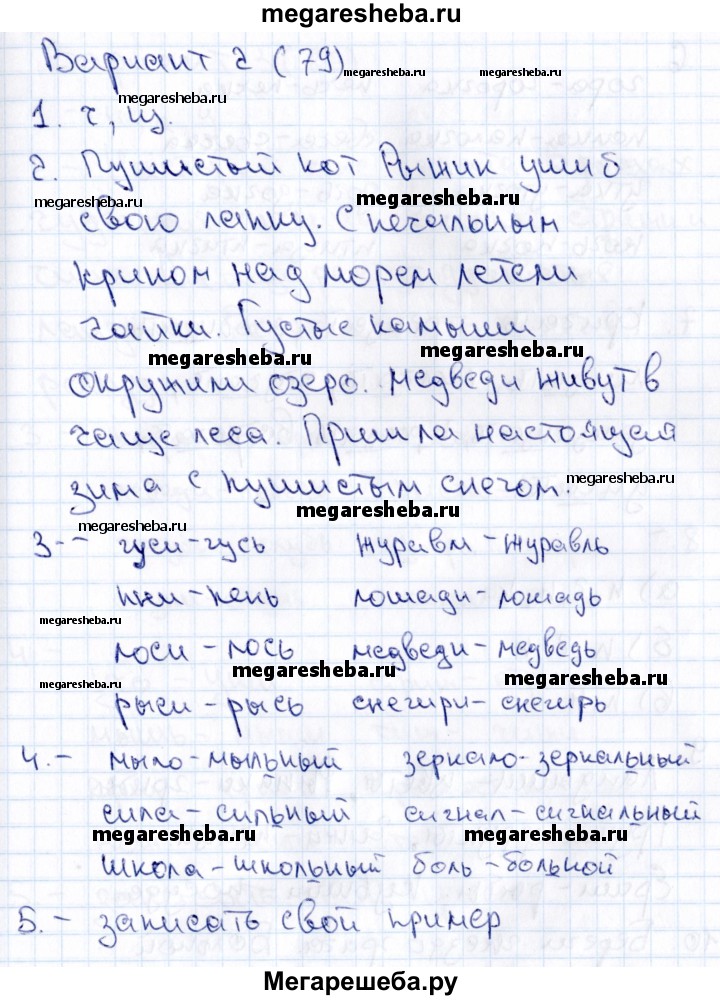 megaresheba.ru
Вариант 2 (79)
megaresheba.ru megaresheba.ru
megaresheba.ru
1. ч, щ.
2. Пушистый кот Рыжик ушиб
megaresheba.ru megaresheba.ru
свою лапку. С печальным
криком над морем летели
чайки. Густые камыши
megaresheba.ru megaresheba.ru
окружили озеро. Медведи живут в
чаще леса. Пришла настоящая
зима с пушистым снегом.
megaresheba.ru
megaresheba.ru megaresheba.ru
3-- гуси-гусь журавли-журавль
пни-пень лошади-лошадь
megaresheba.ru
лоси-лось медведи-медведь
megaresheba.ru megaresheba.ru
megaresheba.ru
рыси-рысь снегири-снегирь
4.- мыло-мыльный зеркало-зеркальный
сила-сильный сигнал-сигнальный
megaresheba.ru megaresheba.ru
школа-школьный боль-больной
5.- записать свой пример
Мегарешеба.ру